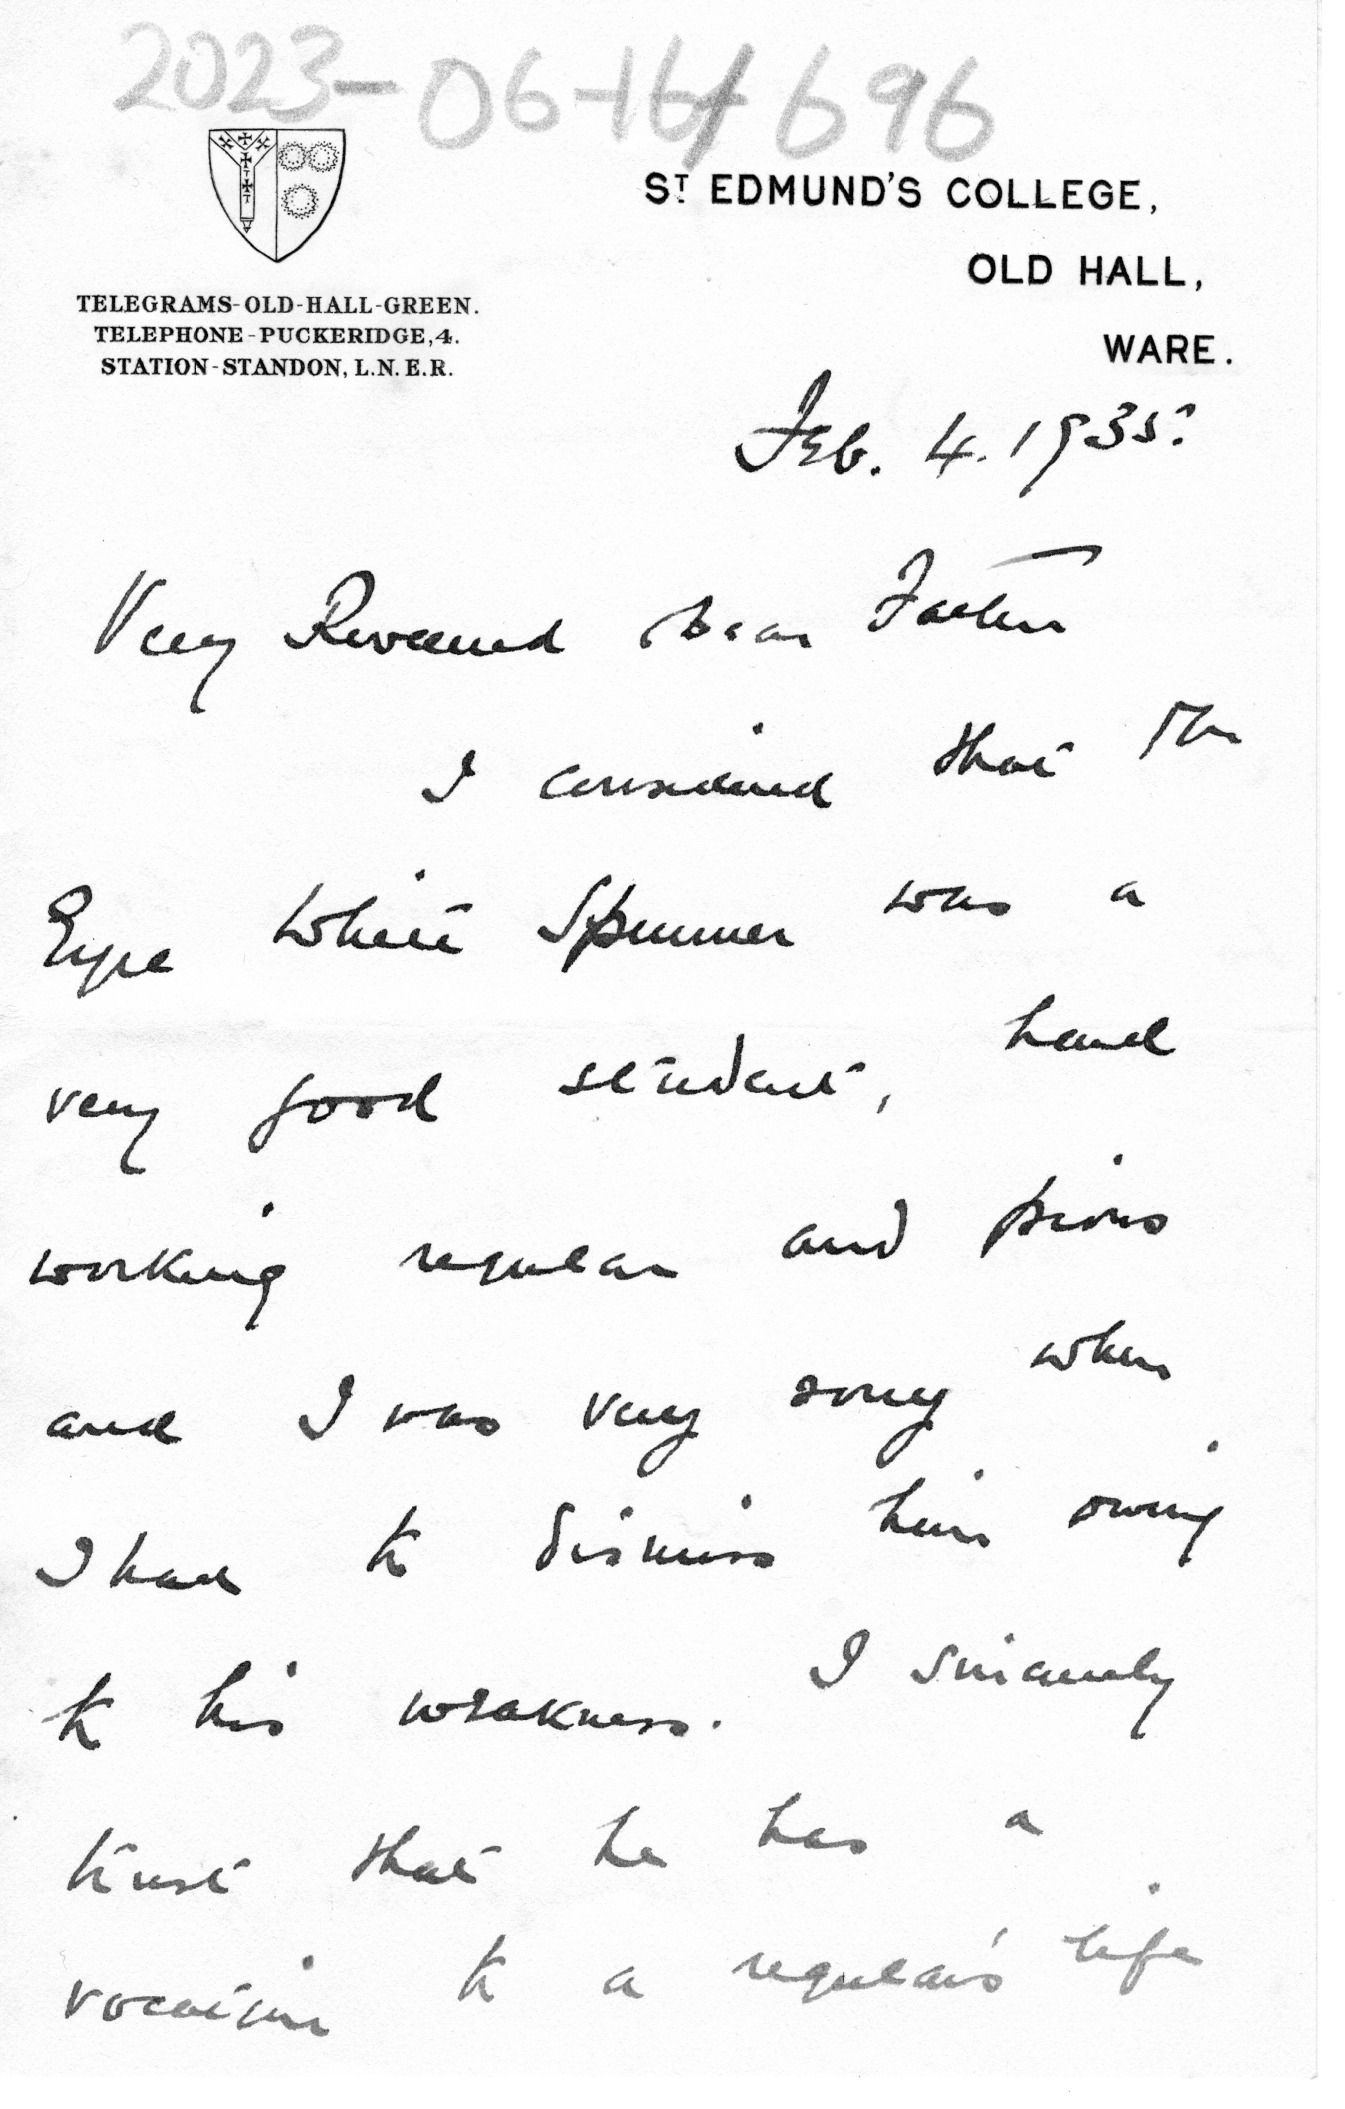 2023-06-16/696
ST EDMUND'S COLLEGE,
OLD HALL,
WARE.
TELEGRAMS-OLD-HALL-GREEN.
TELEPHONE-PUCKERIDGE,4.
STATION-STANDON, L.N.E.R.
Feb. 4. 1935.
Very Reverend dear Father
I considered that Mr
White Spunner was a
very good student, hard
working regular and pious
and I was very sorry when
I had to dismiss him owing
to his weakness. I sincerely
trust that he has a
vocation to a regular's life